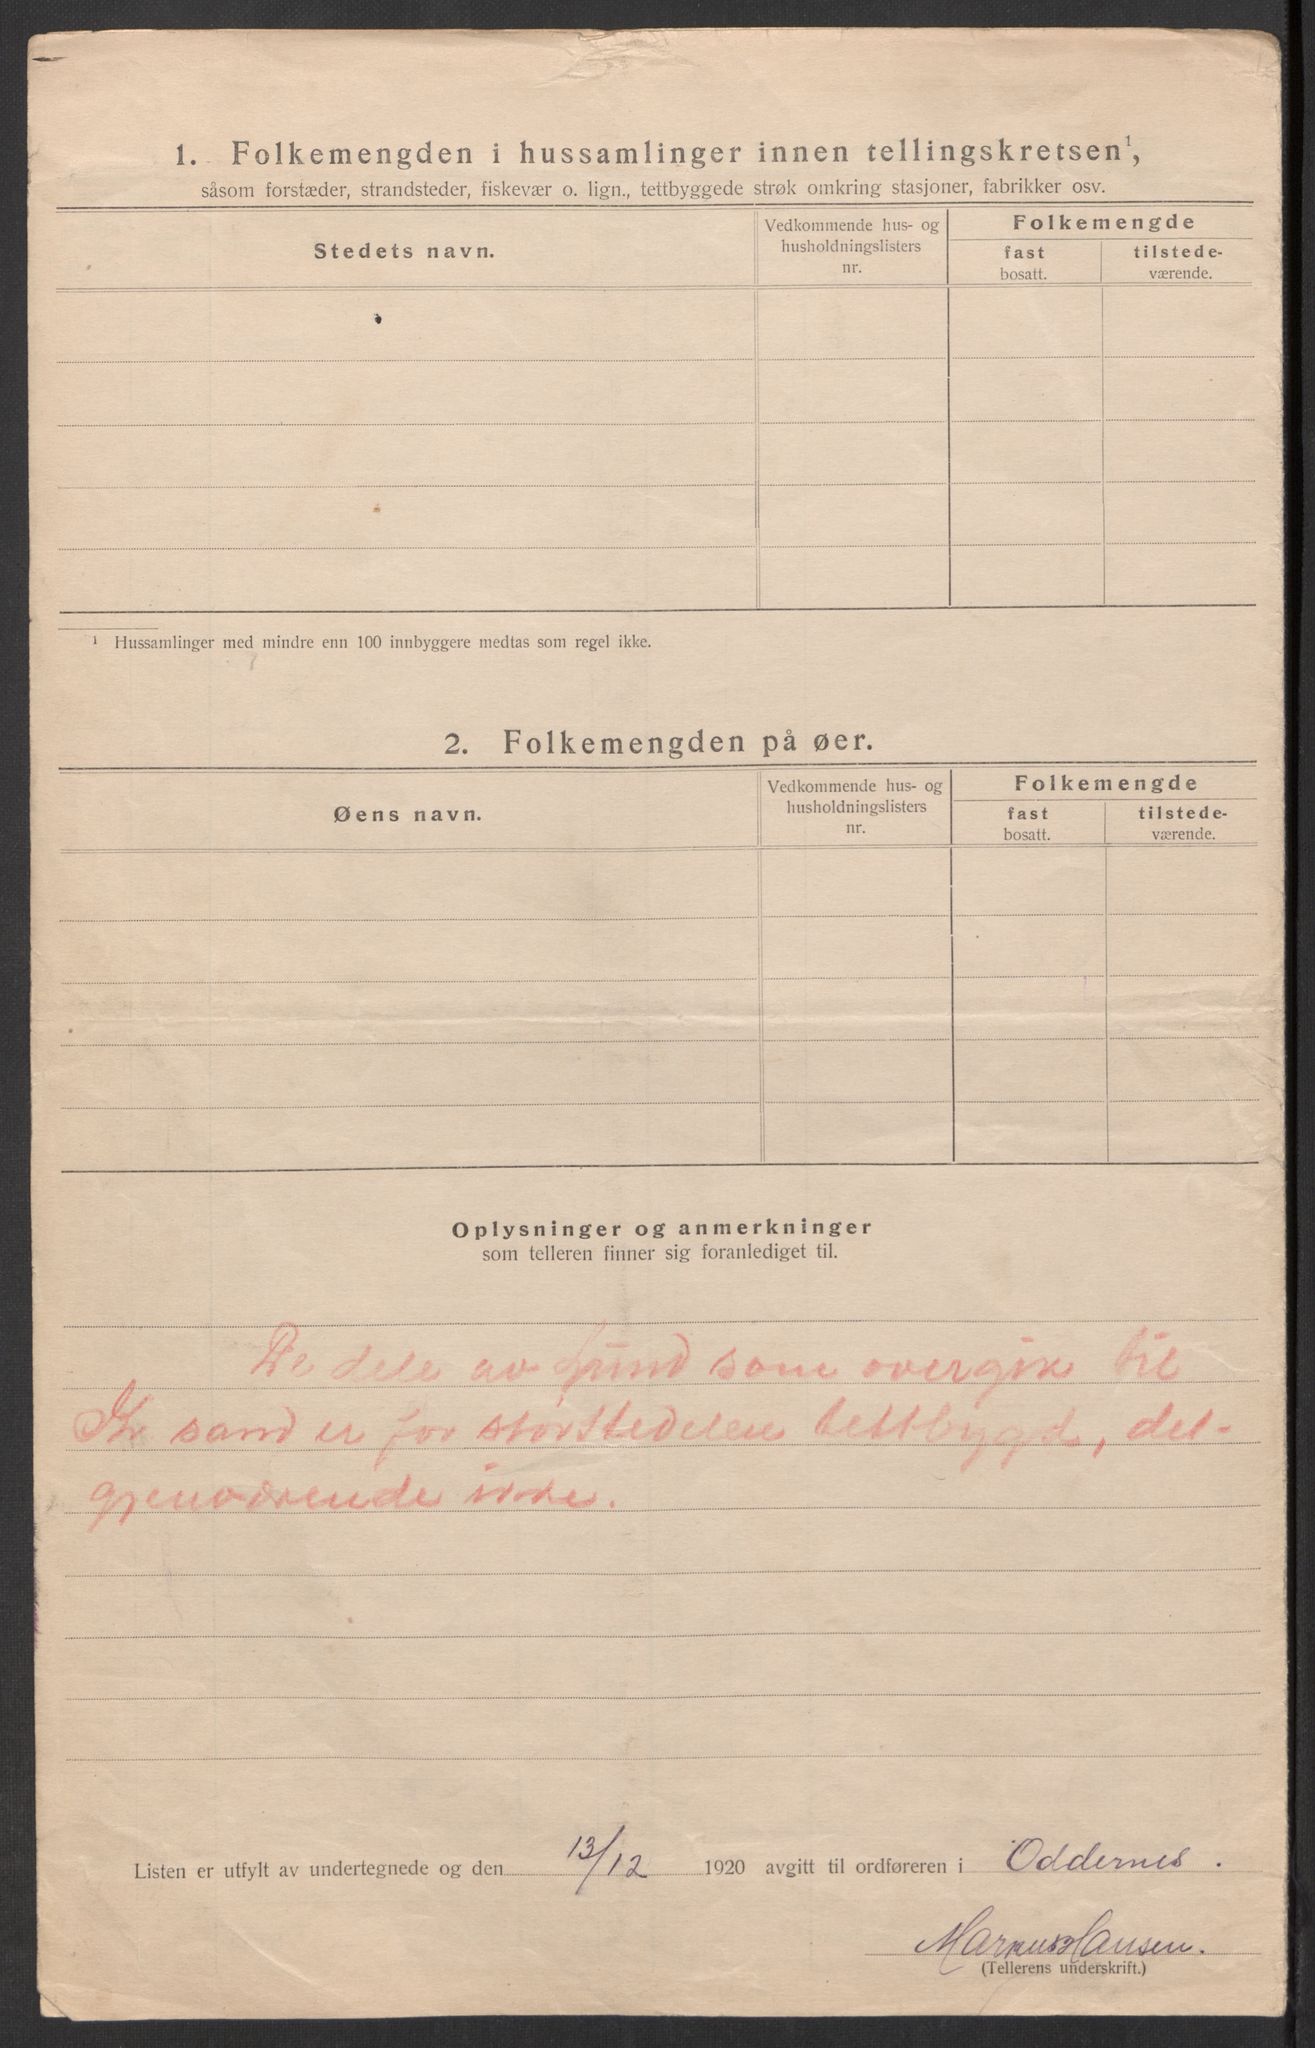 1. Folkemengden i hussamlinger innen tellingskretsen¹,
såsom forstæder, strandsteder, fiskevær o. lign., tettbyggede strøk omkring stasjoner, fabrikker osv.
Stedets navn.
Vedkommende hus- og
husholdningslisters
nr.
Folkemengde
fast
bosatt.
tilstede-
værende.
¹ Hussamlinger med mindre enn 100 innbyggere medtas som regel ikke.
2. Folkemengden på øer.
Øens navn.
Vedkommende hus- og
husholdningslisters
nr.
Folkemengde
fast
bosatt.
tilstede-
værende.
Oplysninger og anmerkninger
som telleren finner sig foranlediget til.
De dele av Lund som overgik til
Kr sand er for størstedelen tettbygd, det-
gjenværende ikke.
Listen er utfylt av undertegnede og den 13/12 1920 avgitt til ordføreren i Oddernes.
Markus Hansen.
(Tellerens underskrift.)